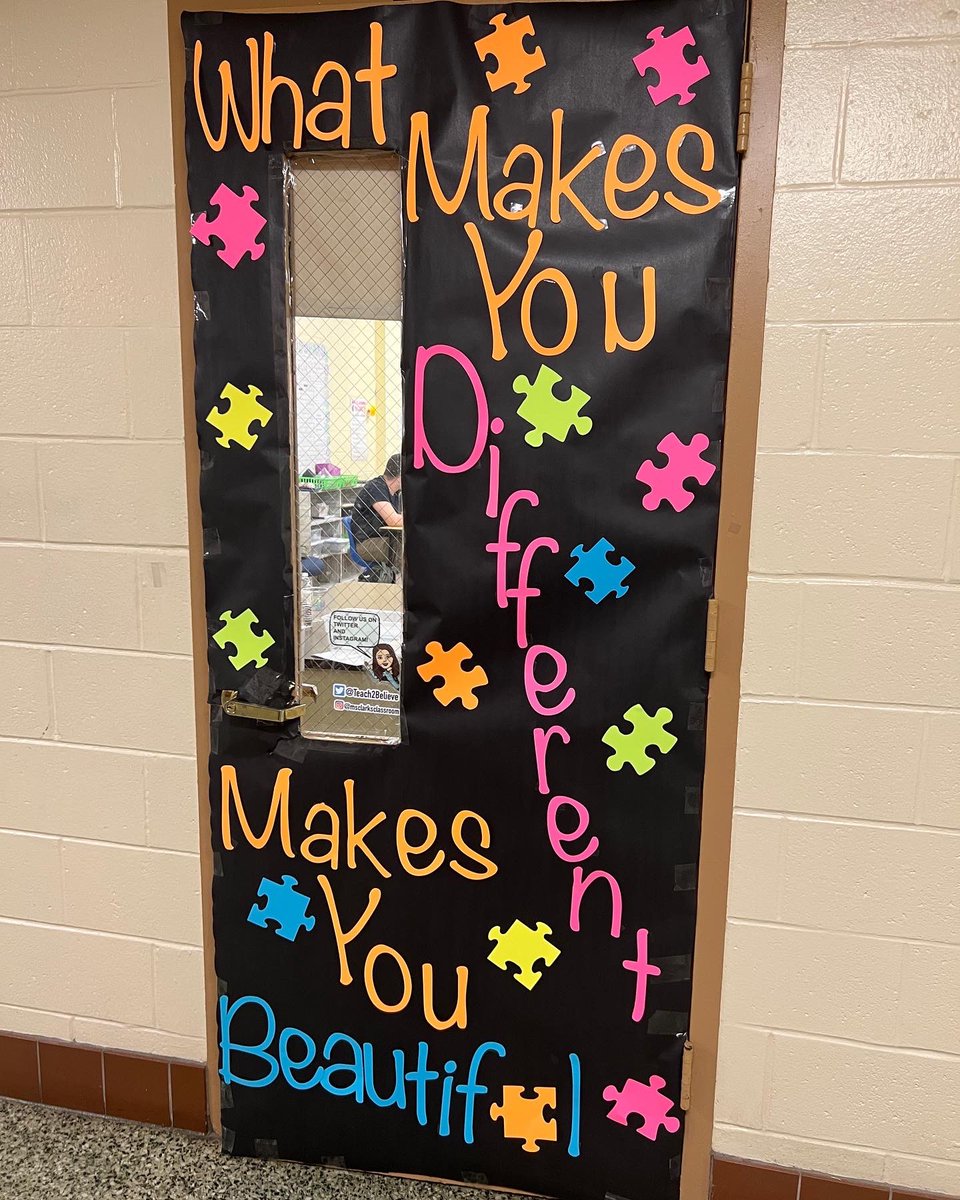 What
Makes
You
Different
FOLLOW US ON
TWITTER
AND
INSTAGRAM!
@Teach2Believe
@msclarksclassroom
Makes
You
Beautiful